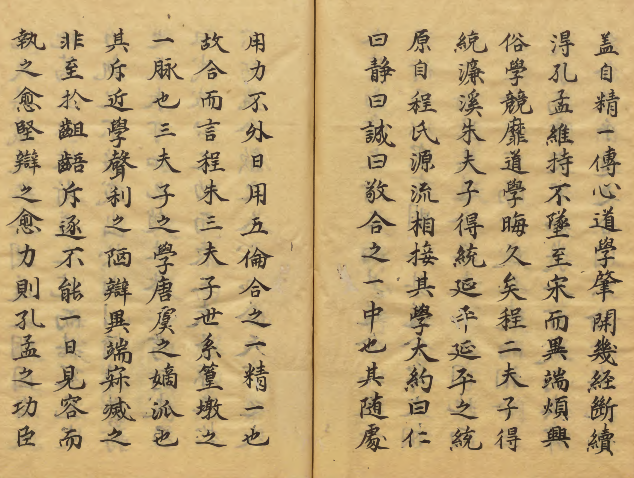 盖自精一傳心道學肇開幾経斷續
淂孔孟維持不墜至宋而異端煩興
俗學競靡道學晦久矣程二夫子得
統濂溪朱夫子得統延平延平之統
原自程氏源流相接其學大約曰仁
曰静曰誠曰敬合之一中也其随處
用力不外日用五倫合之一精一也
故合而言程朱三夫子世系篁墩之
一脉也三夫子之學唐虞之嫡派也
其斥近學聲利之陋辯異端寂滅之
非至扵齟齬斥逐不能一日見容而
執之愈堅辯之愈力則孔孟之功臣